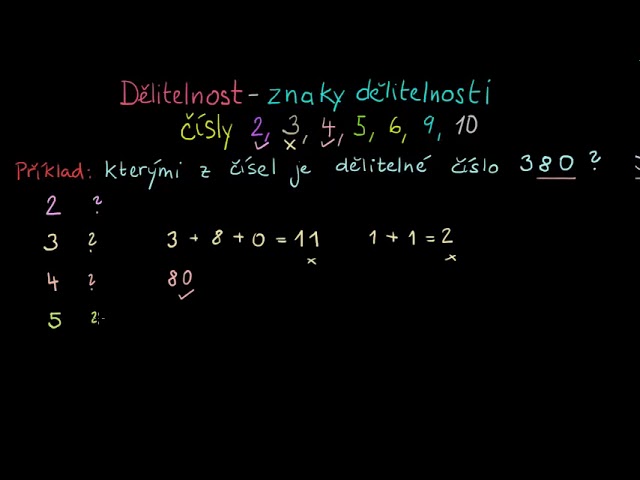 Dělitelnost - znaky dělitelnosti
čísly 2, 3, 4, 5, 6, 9, 10
Příklad: kterými z čísel je dělitelné číslo 380 ?
2 ?
3 ? 3 + 8 + 0 = 11 1 + 1 = 2
4 ? 80
5 ?